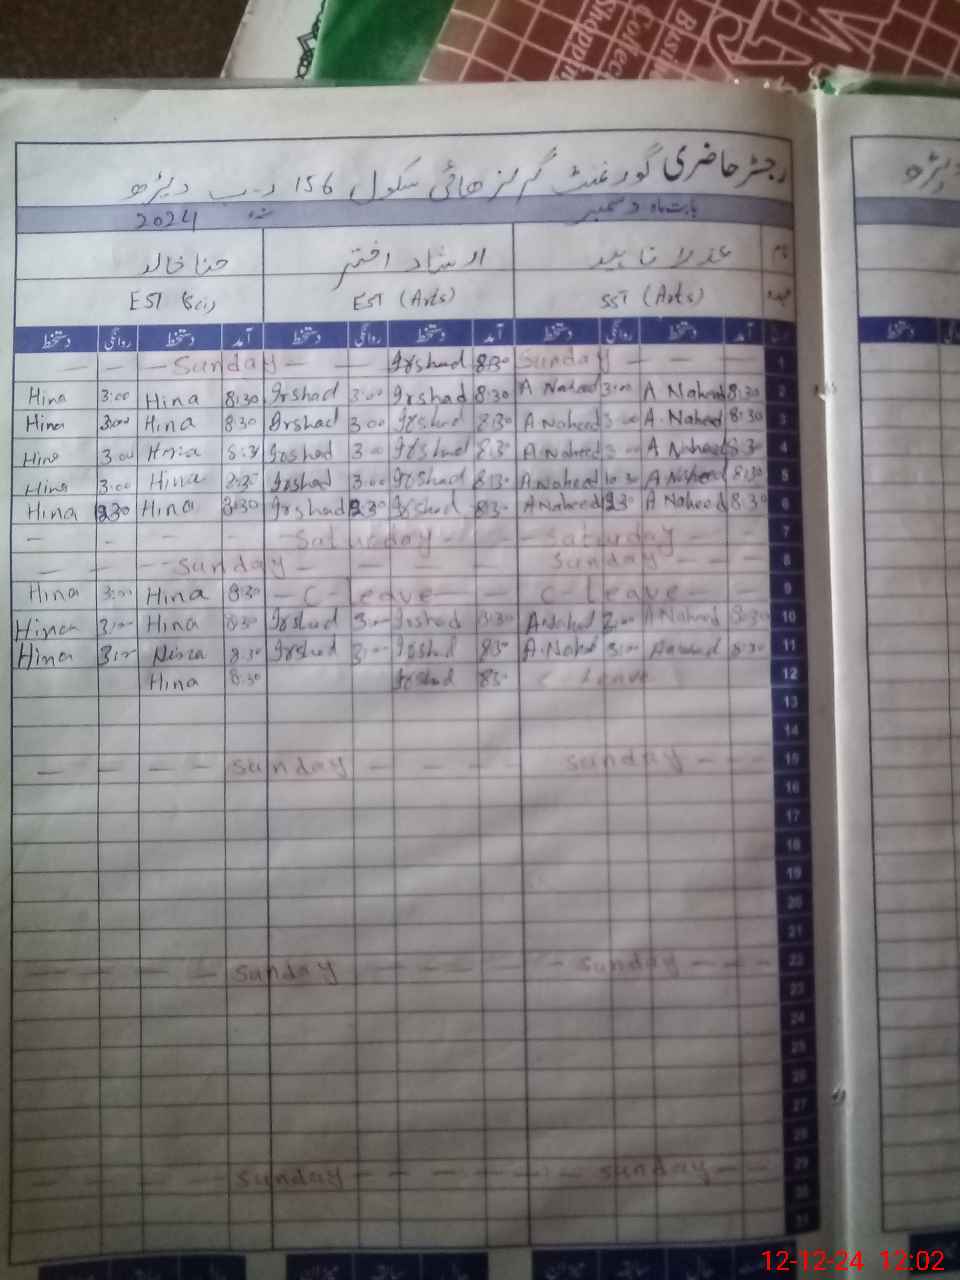 Busi
Collec
Shoppin
رجسٹر حاضری گورنمنٹ گرلز ھائی سکول 156 ر-ب
بابت ماہ دسمبر 2024ء
نام ارشاد اختر حنا خالد
عہدہ SST (Arts) EST (Arts) EST (Sci)
آمد دستخط روانگی دستخط آمد دستخط روانگی دستخط آمد دستخط روانگی دستخط
1 Sunday 8:30 Irshad Sunday
2 8:30 A Naheed 3:00 A Naheed 8:30 Irshad 3:00 Irshad 8:30 Hina 3:00 Hina
3 8:30 A. Naheed 3:00 A. Naheed 8:30 Irshad 3:00 Irshad 8:30 Hina 3:00 Hina
4 8:30 A Naheed 3:00 A Naheed 8:30 Irshad 3:00 Irshad 8:30 Hina 3:00 Hina
5 8:30 A Naheed A Naheed 8:30 Irshad 3:00 Irshad 8:30 Hina 3:00 Hina
6 8:30 A Naheed 2:30 A Naheed 8:30 Irshad 2:30 Irshad 8:30 Hina 2:30 Hina
7 Saturday Saturday
8 Sunday Sunday
9 C-Leave C-Leave 8:30 Hina 3:00 Hina
10 8:30 A Naheed 3:00 A Naheed 8:30 Irshad 3:00 Irshad 8:30 Hina 3:00 Hina
11 8:30 3:00 A. Nahed 8:30 Irshad 3:00 Irshad 8:30 3:00 Hina
12 C Leave 8:30 Irshad 8:30 Hina
13
14
15 Sunday Sunday
16
17
18
19
20
21
22 Sunday Sunday
23
24
25
26
27
28
29 Sunday Sunday
30
31
12-12-24 12:02